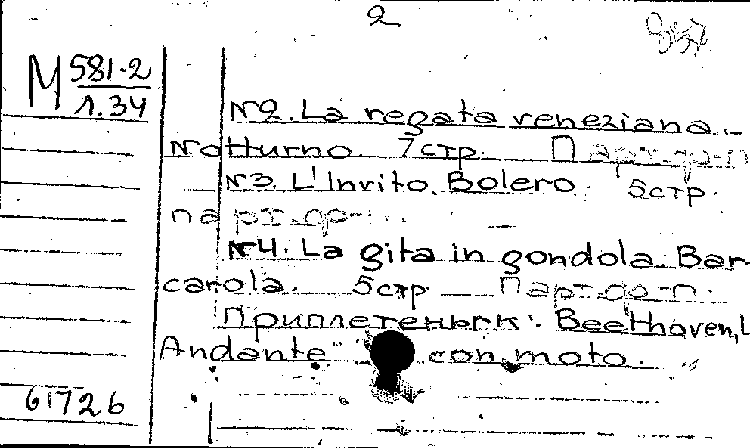 2
М 581-2
1.34
№2. La regata veneziana.-
Notturno. 7стр. Парт.ф-п
№3. L'Invito. Bolero. 5стр.
парт.фр-
№4. La gita in gondola. Bar-
carola. 5стр. Парт.ф-п.
Приплетены к: Beethoven, L
Andante con moto.
61726